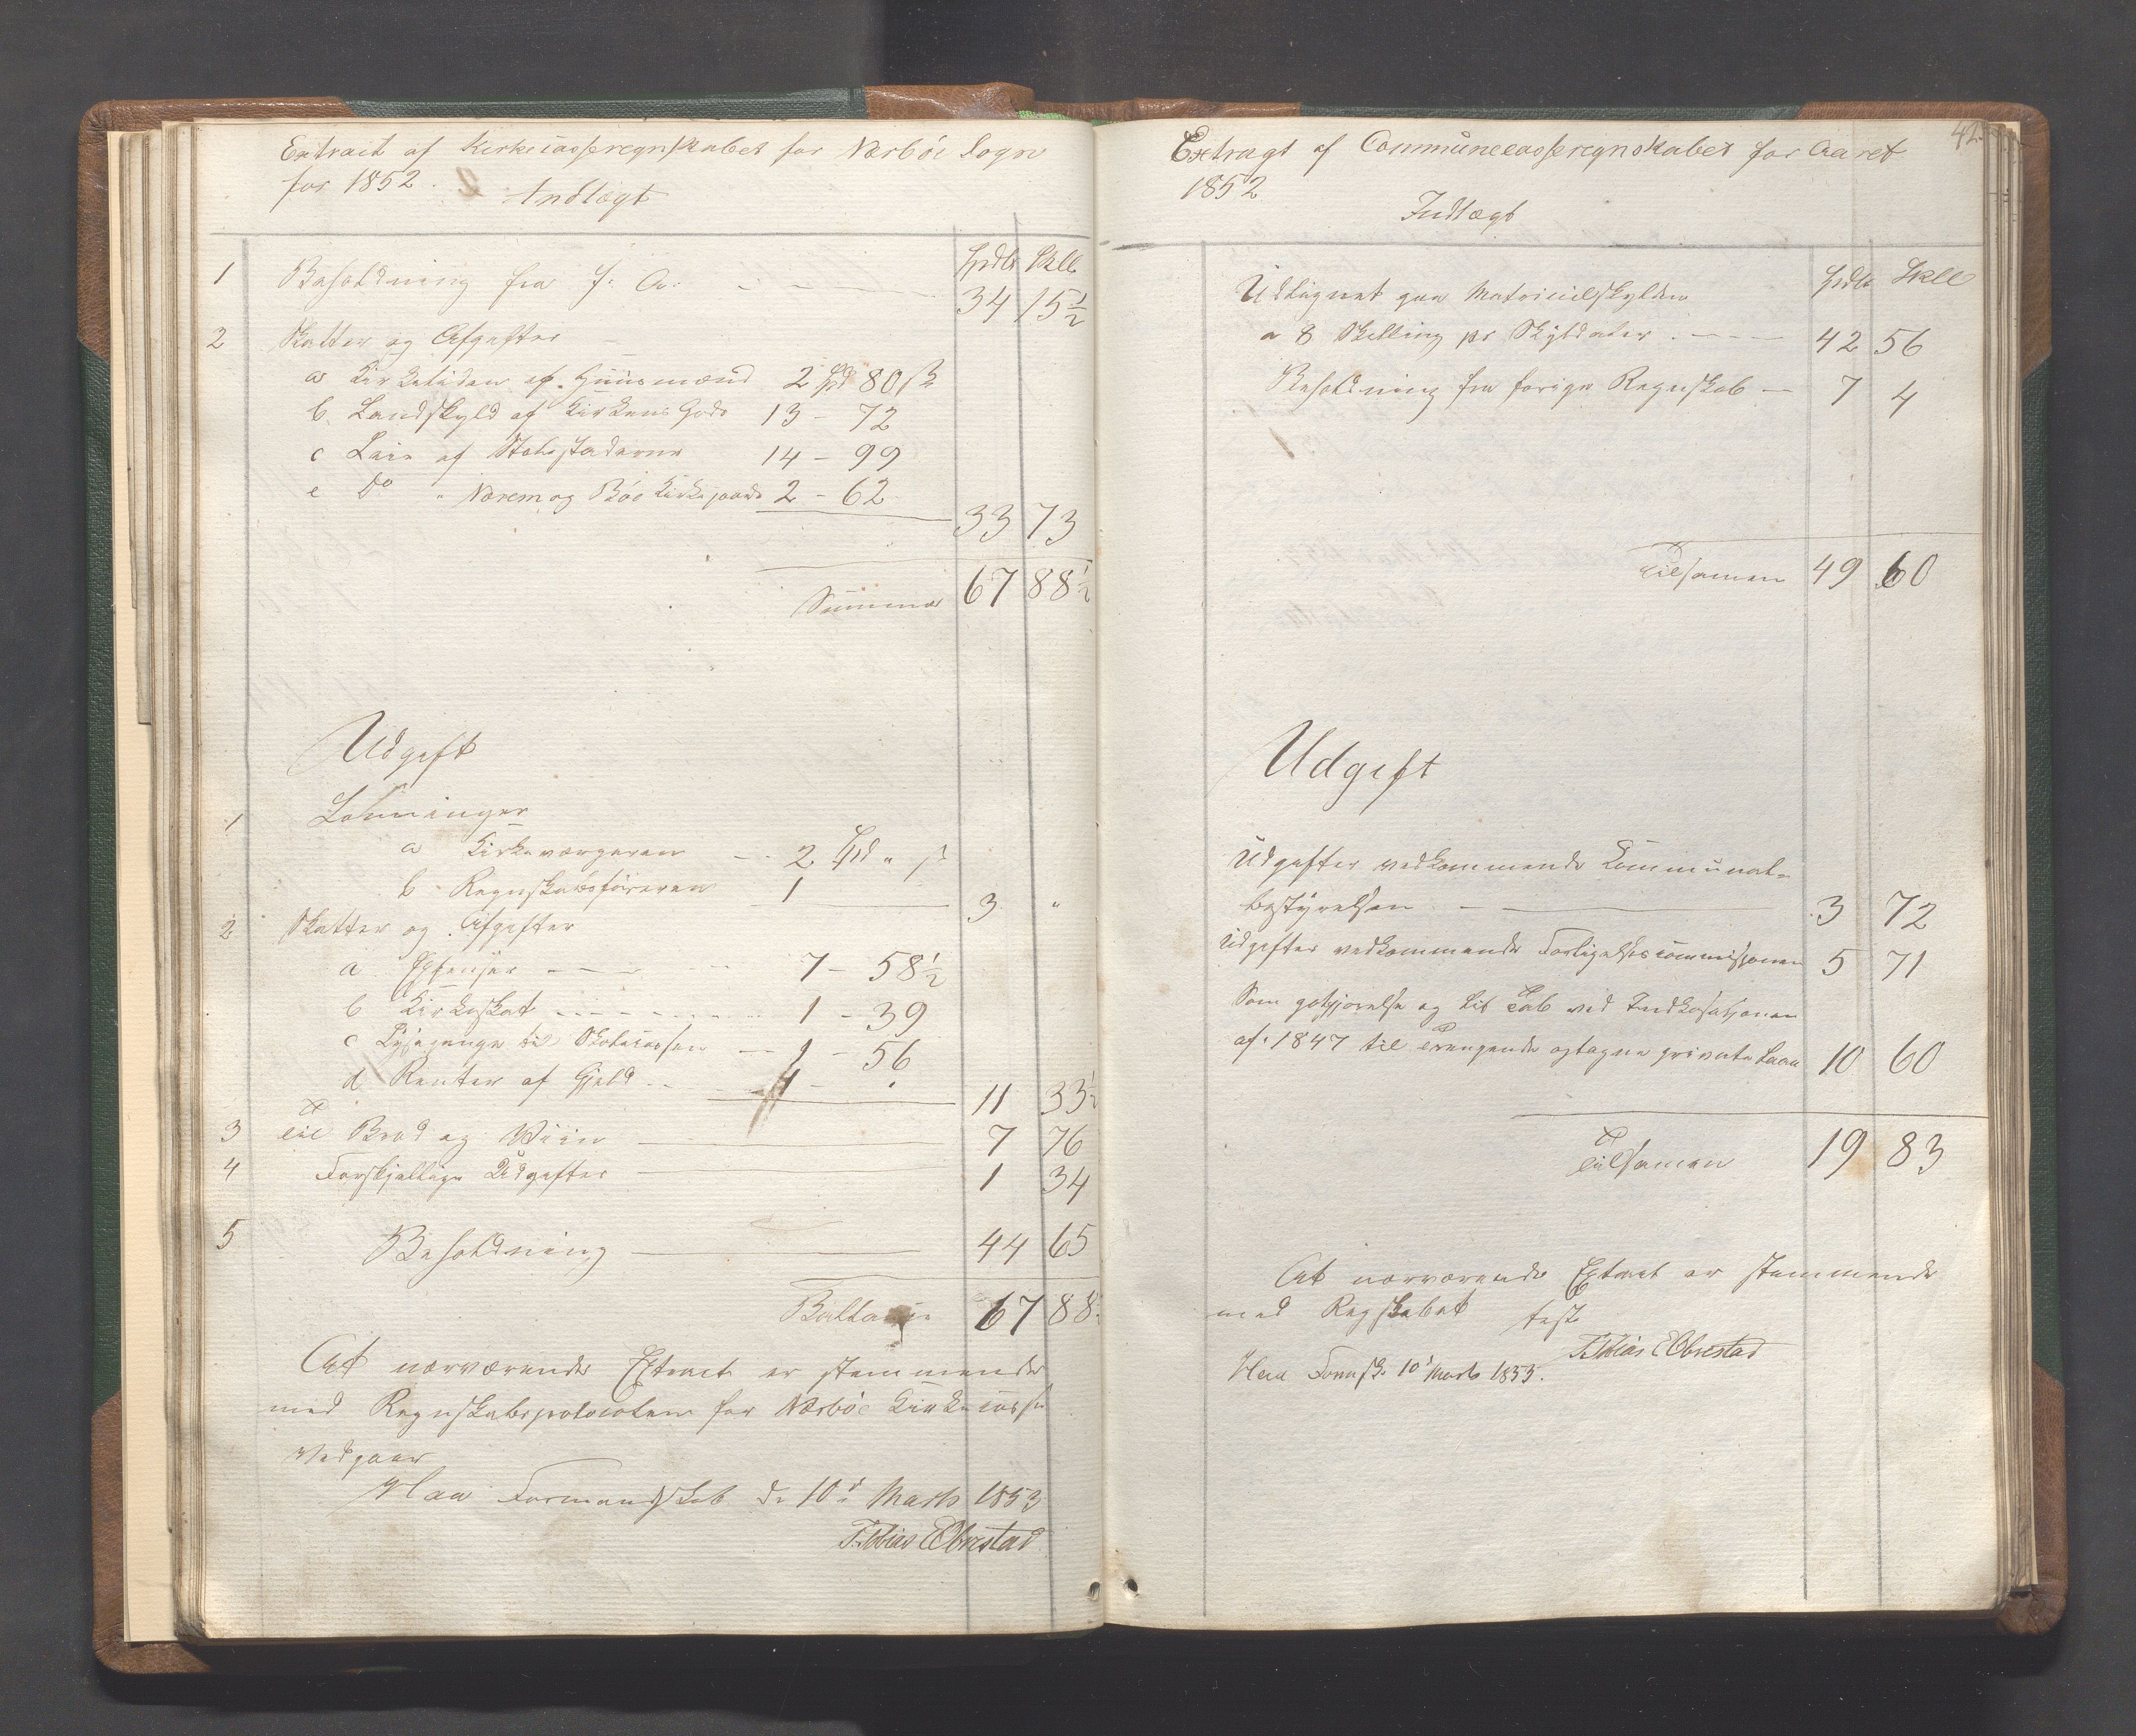 Extract af Kirkecasseregnskabet for Nærbøe Sogn
for 1852.
Indtægt
Spdlr Skll
1 Beholdning fra f. A. 34 15½
2 Skatter og Afgifter
a Kirketiden af Huusmænd 2 Spd 80 ß
b. Landskyld af Kirkens Gods 13 - 72
c Leie af Stolestaderne 14 - 99
e Do " Nærem og Bøe Kirkejorde 2 - 62
33 73
Summa 67 88½
Udgift
1 Lønninger
a Kirkeværgeren 2 Spd " ß
b Regnskabsføreren 1
3 "
2 Skatter og Afgifter
a 7 - 58½
b Kirkeskat 1 - 39
c til 1 - 56
d Renter af Gjeld 1 -
11 33½
3 Til Brød og Viin 7 76
4 Forskjellige Udgifter 1 34
5 Beholdning 44 65
Ballance 67 88½
At nærværende Extract er stemmende
med Regnskabsprotocolen for Nærbøe Kirkecasse
Vedgaaer
Haa Formandskab d. 10d Marts 1853
Tobias EObrestad
42.
Extragt af Communecasseregnskabet for Aaret
1852
Indtægt
Spdlr Skll
Udlignet paa Matriculskylden
a 8 Skilling pr Skylddaler 42 56
Beholdning fra forige Regnskab 7 4
Tilsamen 49 60
Udgift
Udgifter vedkommende Kommunal-
bestyrelsen 3 72
Udgifter vedkommende Forligelsescommissjonen 5 71
Som godtgjørelse og Tab ved
af 1847 til Trængende optagne private Laan 10 60
Tilsamen 19 83
At nærværende Extract er stemmende
med Regskabet test
Tobias EObrestad
Haa Formsk. 10d Marts 1853.